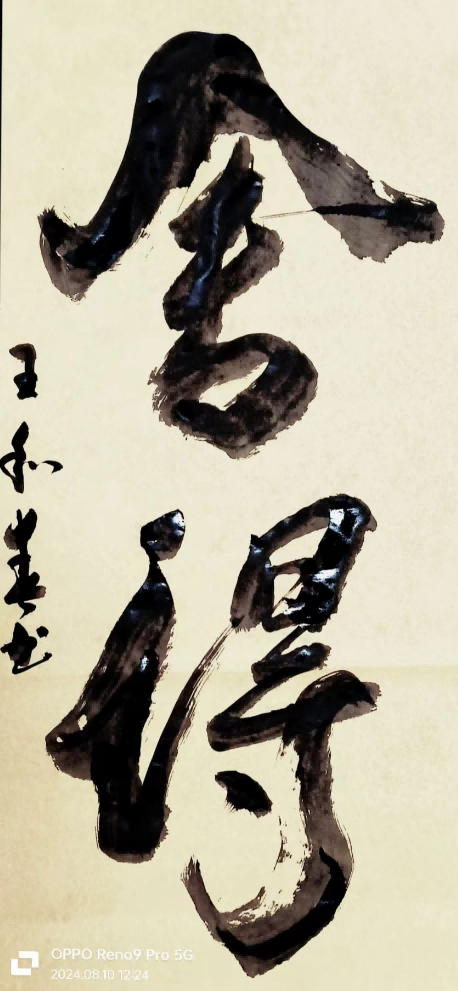 舍得
王和春书
OPPO Reno9 Pro 5G
2024.08.10 12:24